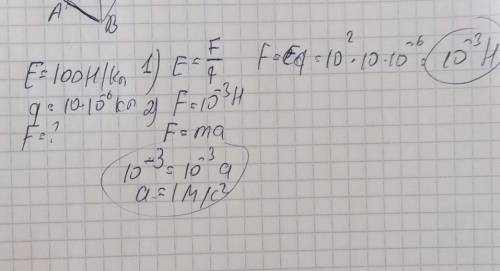 A
B
E=100Н/Кл 1) E=F/q F=Eq=10²·10·10⁻⁶= 10⁻³Н
q=10·10⁻⁶Кл 2) F=10⁻³Н
F=? F=ma
10⁻³=10⁻³a
a=1м/с²